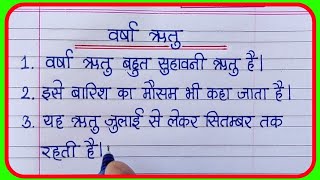 वर्षा ऋतु
1. वर्षा ऋतु बहुत सुहावनी ऋतु है।
2. इसे बारिश का मौसम भी कहा जाता है।
3. यह ऋतु जुलाई से लेकर सितम्बर तक
रहती है।